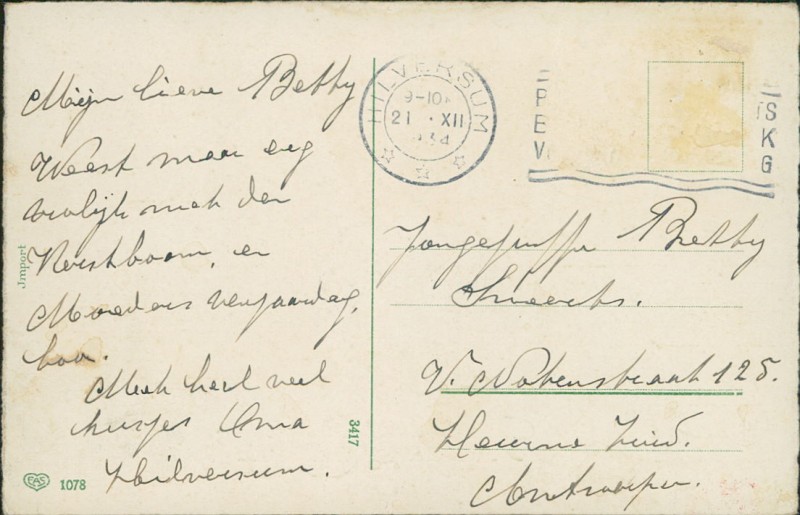 Mijn lieve Betty
Weest maar erg
vrolijk met den
Kerstboom, en
Moeders verjaardag,
hoor.
Met heel veel
kusjes Oma
Hilversum.
HILVERSUM
9-10
21 XII
34
P
E
V
IS
K
G
Jongejuffr Betty
V. Notenstraat 125.
Deurne Zuid.
Antwerpen.
Jmport
3417
EAS 1078